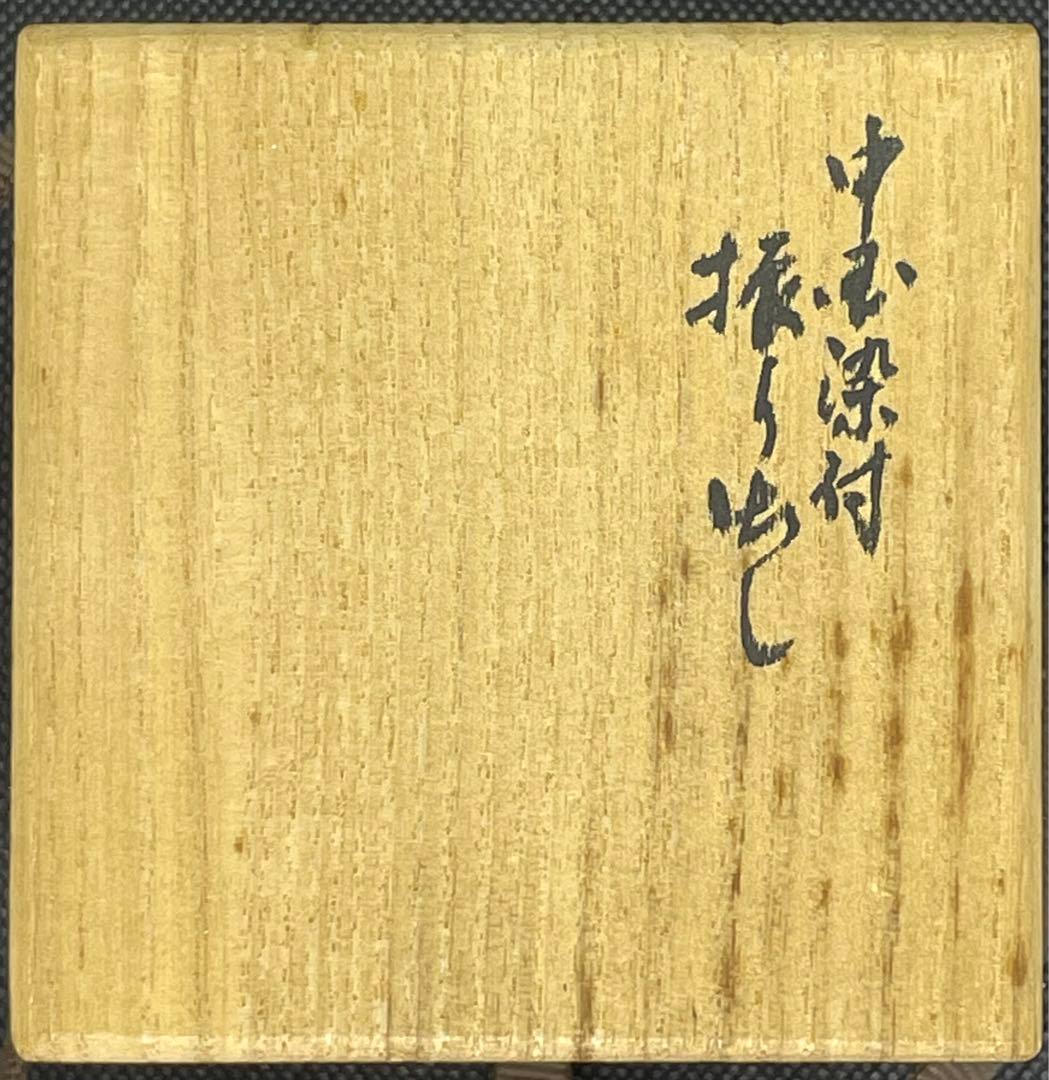 中国染付
振り出し